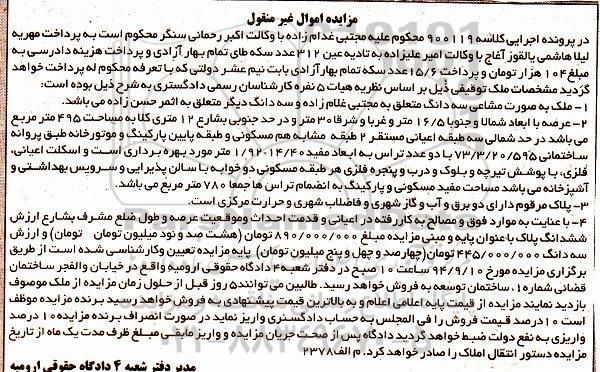 مزایده اموال غیر منقول
در پرونده اجرایی کلاسه ۹۰۰۱۱۹ محکوم علیه مجتبی غدام زاده با وکالت اکبر رحمانی سنگر محکوم است به پرداخت مهریه
لیلا هاشمی یالقوز آغاج با وکالت امیر علیزاده به تادیه عین ۳۱۲ عدد سکه طلای تمام بهار آزادی و پرداخت هزینه دادرسی به
مبلغ ۱۰۴ هزار تومان و پرداخت ۱۵/۶ عدد سکه تمام بهار آزادی بابت نیم عشر دولتی که با تعرفه محکوم له پرداخت خواهد
گردید مشخصات ملک توقیفی ذیل بر اساس نظریه هیات ۵ نفره کارشناسان رسمی دادگستری به شرح ذیل بوده است:
۱- ملک به صورت مشاعی سه دانگ متعلق به مجتبی غلام زاده و سه دانگ دیگر متعلق به اثمر حسن زاده می باشد.
۲- عرصه با ابعاد شمالا و جنوبا ۱۶/۵ متر و غربا و شرقا ۳۰ متر و در حد جنوبی بشارع ۱۲ متری کلا به مساحت ۴۹۵ متر مربع
می باشد در حد شمالی سه طبقه اعیانی مستقر ۲ طبقه مشابه هم مسکونی و طبقه پایین پارکینگ و موتورخانه طبق پروانه
ساختمانی ۷۳/۳/۲۰/۵۹۵ با دو عدد تراس به ابعاد مفید ۱۴/۴۰*۱/۹۰ متر مورد بهره برداری است و اسکلت اعیانی،
فلزی، با پوشش تیرچه و بلوک و درب و پنجره فلزی هر طبقه مسکونی دو خوابه با سالن پذیرایی و سرویس بهداشتی و
آشپزخانه می باشد مساحت مفید مسکونی و پارکینگ به انضمام تراس ها جمعا ۷۸۰ متر مربع می باشد.
۳- پلاک مرقوم دارای دو برق و آب و گاز شهری و فاضلاب شهری و حرارت مرکزی است.
۴- با عنایت به موارد فوق و مصالح به کار رفته در اعیانی و قدمت احداث و موقعیت عرصه و طول ضلع مشرف بشارع ارزش
ششدانگ پلاک با عنوان پایه و مبنی مزایده مبلغ ۸۹۰/۰۰۰/۰۰۰ تومان (هشت صد و نود میلیون تومان) و ارزش
سه دانگ ۴۴۵/۰۰۰/۰۰۰ تومان (چهارصد و چهل و پنج میلیون تومان) پایه مزایده تعیین و کارشناسی شده است از طریق
برگزاری مزایده مورخ ۹۴/۹/۱۰ ساعت ۱۰ صبح در دفتر شعبه ۴ دادگاه حقوقی ارومیه واقع در خیابان والفجر ساختمان
قضائی شماره ۱. ساختمان توسعه به فروش خواهد رسید. طالبین می توانند ۵ روز قبل از حلول زمان مزایده از ملک موصوف
بازدید نمایند مزایده از قیمت پایه اعلامی اعلام و به بالاترین قیمت پیشنهادی به فروش خواهد رسید برنده مزایده موظف
است ۱۰ درصد قیمت فروش را فی المجلس به حساب دادگستری واریز نماید در صورت انصراف برنده مزایده ۱۰ درصد
واریزی به نفع دولت ضبط خواهد گردید دادگاه پس از صحت جریان مزایده و واریز مابقی مبلغ ظرف مدت یک ماه از تاریخ
مزایده دستور انتقال املاک را صادر خواهد کرد. م الف ۲۳۷۸
مدیر دفتر شعبه ۴ دادگاه حقوقی ارومیه